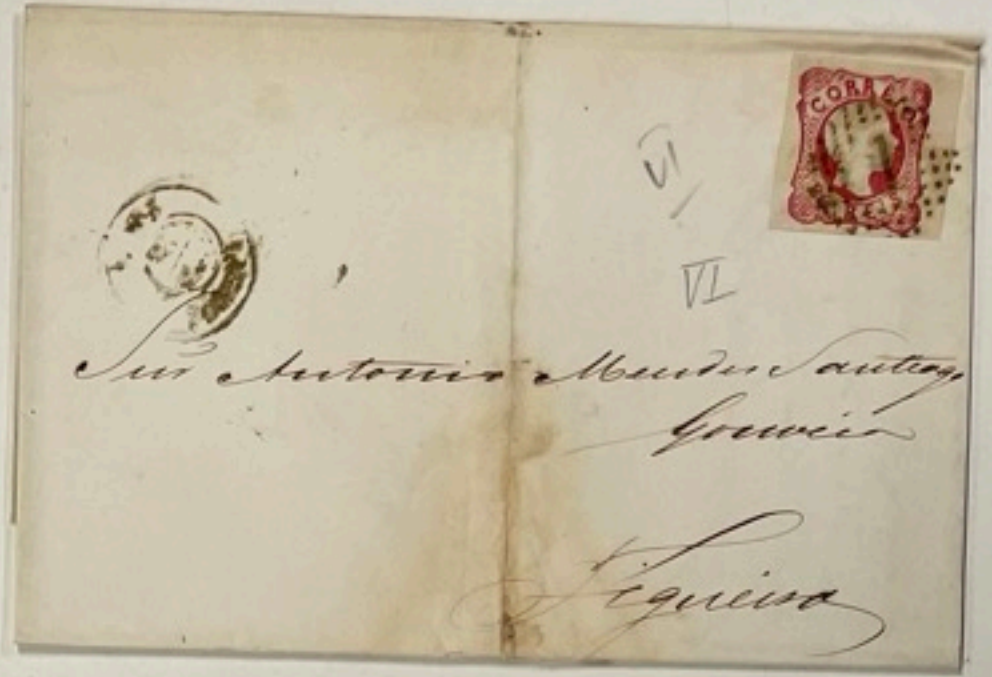 CORREIO
VI
VI
Snr Antonio Mendes Santiago
Gouveia
Figueira